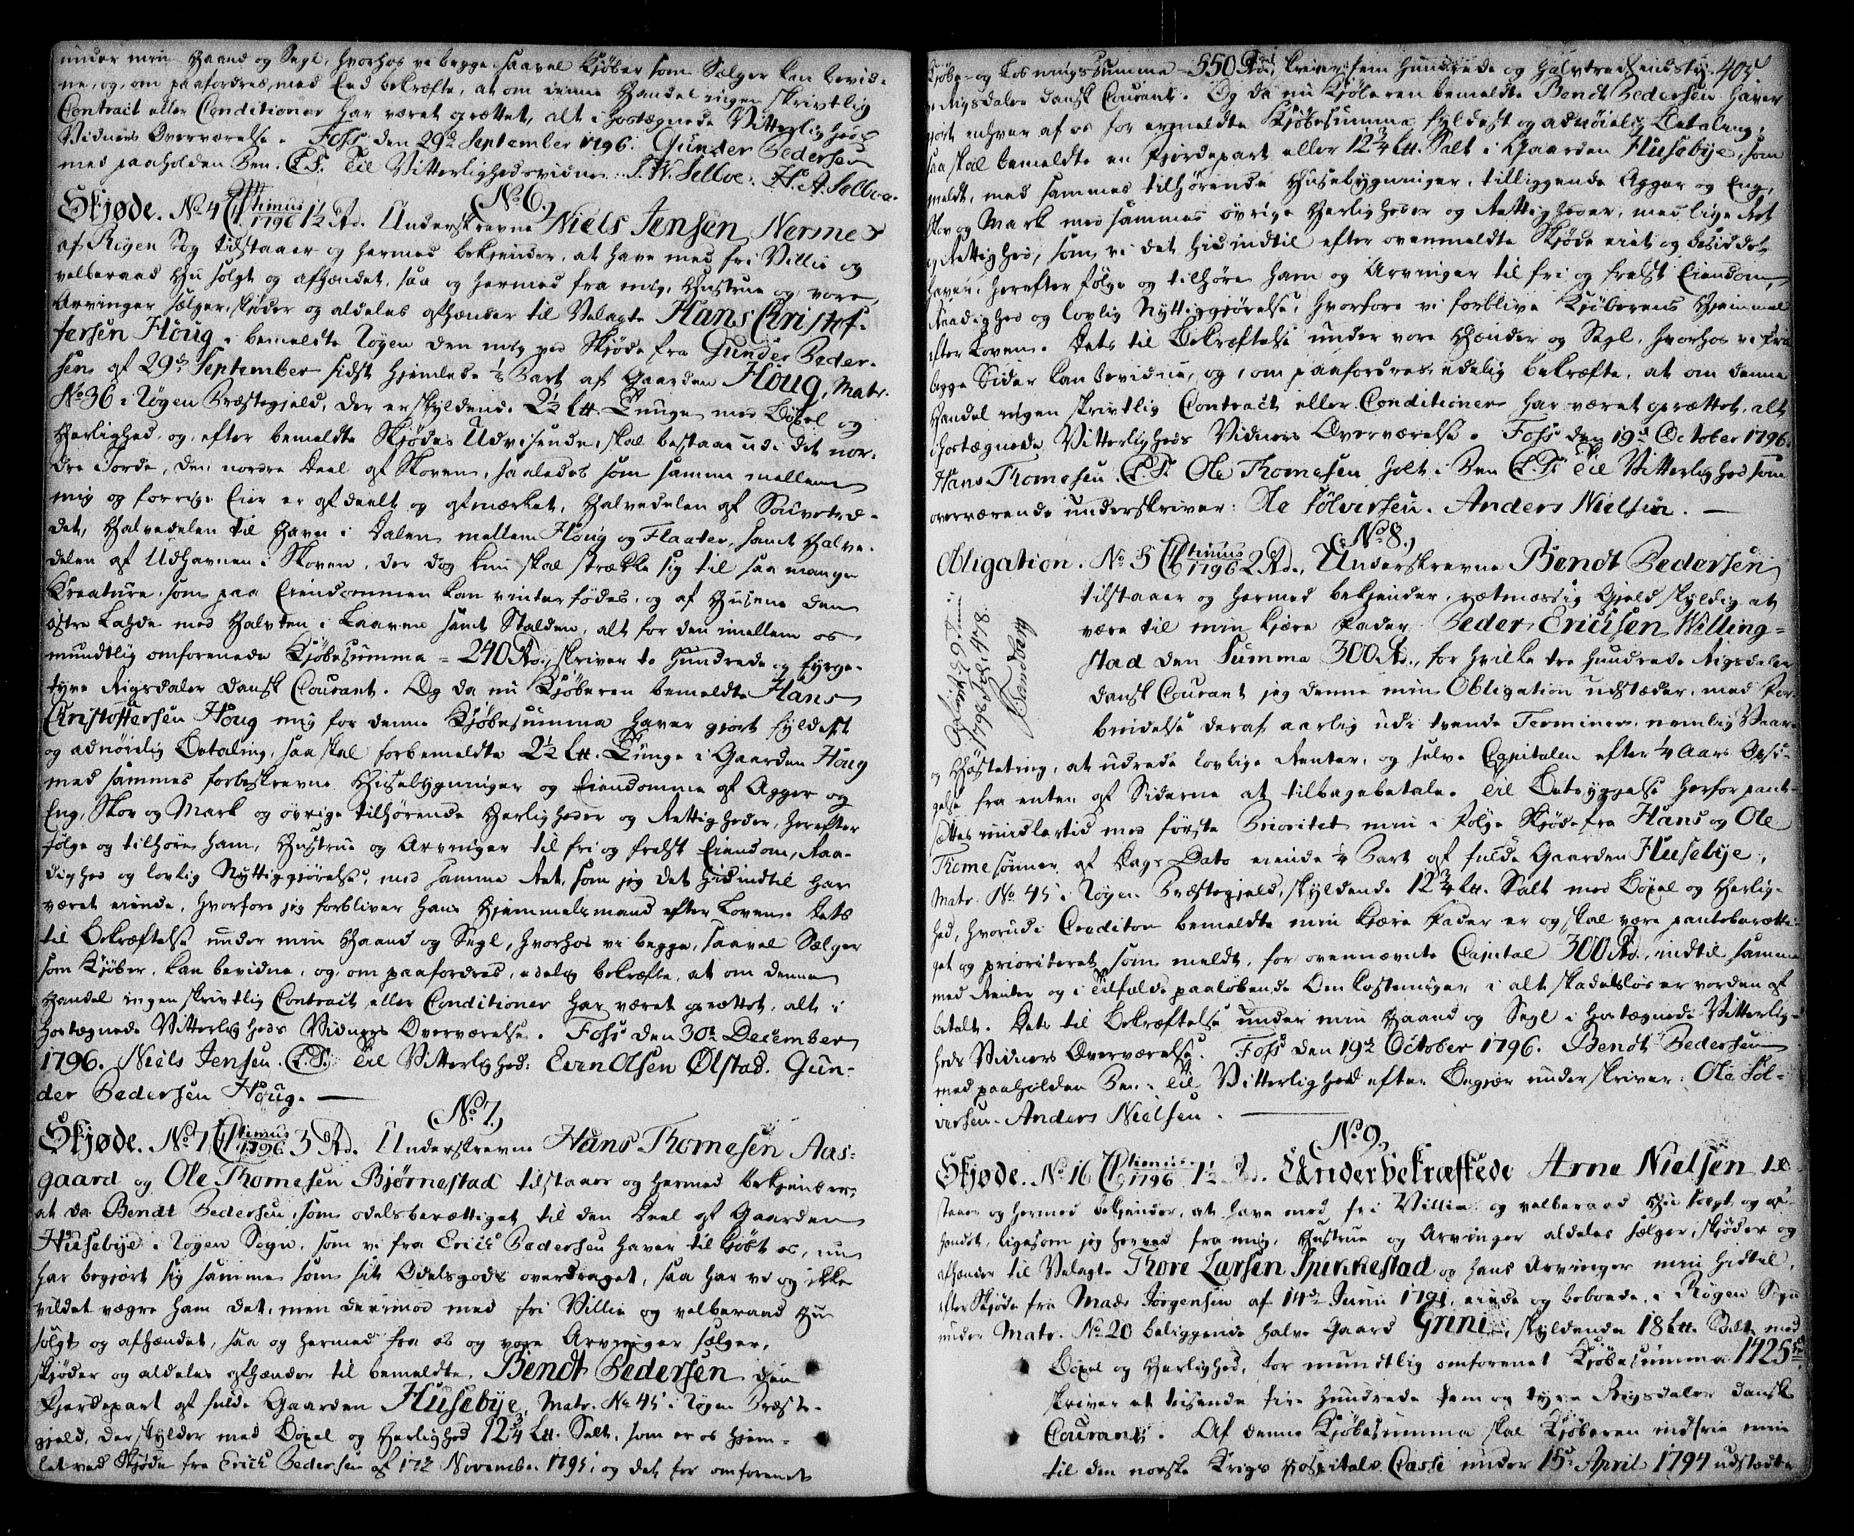 under min Haand og Segl, hvorhos vi begge saavel Kjøber som Sælger kan bevid-
ne, og, om paafordres, med Eed bekræfte, at om denne Handel ingen skrivtlig
Contract eller Conditioner har været oprættet, alt i hostegnede Vitterligheds
Vidners Overværelse. Foss den 29de September 1796. Gunder Pedersen
med paaholden Pen. (L.S.) Til Vitterlighedsvidner: J. W. Sellve. H. A. Sellve.
(No 6.)
Skjøde. No 4 1796 1½ Rd. Underskrevne Niels Jensen Nersnes
af Røgen Sogn tilstaaer og hermed bekjender, at have med fri Villie og
velberaad Hu solgt og afhændet, saa og hermed fra mig, Hustrue og vore
Arvinger sælger, skjøder og aldeles afhænder til Velagte Hans Christof-
fersen Houg i bemeldte Røgen den mig ved Skjøde fra Gunder Peder-
sen af 29de September sidst hjemlede ½ Part af Gaarden Houg, Matr.
No 36 i Røgen Præstegjeld, der er skyldende 2½ Lt. Tunge med Bøxel og
Herlighed, og, efter bemeldte Skjødes Udvisende, skal bestaae udi det nor-
dre Jorde, den nordre Deel af Skoven, saaledes som samme mellem
mig og forrige Eier er afdeelt og afmærket, Halvedelen af
det, Halvedelen til Havn i Dalen mellem Houg og Flaater, samt Halve-
delen af Udhavnen i Skoven, der dog kun skal strække sig til saa mange
Kreature, som paa Eiendommen kan vinterfødes, og af Husene den
østre Lahde med Halvten i Laaven samt Stalden, alt for den imellem os
mundtlig omforenede Kjøbesumma = 240 Rd., skriver to Hundrede og fyrge-
tyve Rigsdaler Dansk Courant. Og da nu Kjøberen bemeldte Hans
Christoffersen Houg mig for denne Kjøbesumma haver gjort fyldest
og adnøielig Betaling, saa skal forbemeldte 2½ Lt. Tunge i Gaarden Houg
med sammes forbeskrevne Huusebygninger og Eiendomme af Agger og
Eng, Skov og Mark og øvrige tilhørende Herligheder og Rettigheder, herefter
følge og tilhøre ham, Hustrue og Arvinger til fri og frelst Eiendom, Raa-
dighed og lovlig Nyttiggjørelse, med samme Ret, som jeg det hidindtil har
været eiende, hvorfore jeg forbliver hans Hjemmelsmand efter Loven. Dets
til Bekræftelse under min Haand og Segl, hvorhos vi begge, saavel Sælger
som Kjøber, kan bevidne, og, om paafordres, edelig bekræfte, at om denne
Handel ingen skrivtlig Contract eller Conditioner har været oprættet, alt i
hostegnede Vitterligheds Vidners Overværelse. Foss den 30te December
1796. Niels Jensen. (L.S.) Til Vitterlighed: Even Olsen Ølstad. Gun-
der Pedersen Houg.
(No 7.)
Skjøde. No 7 1796 3 Rd. Underskrevne Hans Thomesen Aas-
gaard og Ole Thomesen Bjørnestad tilstaaer og hermed bekjender,
at da Bendt Pedersen, som odelsberættiget til den Deel af Gaarden
Husebye i Røgen Sogn, som vi fra Erich Pedersen haver tilkjøbt os, nu
har begjert sig samme som sit Odelsgods overdraget, saa har vi og ikke
vildet vægre ham det, men derimod med fri Villie og velberaad Hu
solgt og afhændet, saa og hermed fra os og vore Arvinger sælger,
skjøder og aldeles afhænder til bemeldte Bendt Pedersen den
Fjerdepart af fulde Gaarden Husebye, Matr. No 45 i Røgen Præste-
gjeld, der skylder med Bøxel og Herlighed 12¾ Lt. Salt, som er os hjem-
let ved Skjøde fra Erich Pedersen af 17de November 1795, og det for omforenet
Kjøbe- og Løsningssumma 550 Rd., skriver fem Hundrede og Halvtredsindsty- 405.
ve Rigsdaler dansk Courant. Og da nu Kjøberen bemeldte Bendt Pedersen haver
gjort enhver af os for ermeldte Kjøbesumma fyldest og adnøielig Betaling,
saa skal bemeldte en Fjerdepart eller 12¾ Lt. Salt i Gaarden Husebye, som
meldt, med sammes tilhørende Husebygninger, tilliggende Agger og Eng,
Skov og Mark med sammes øvrige Herligheder og Rettigheder, med lige Ret
og Rettighed, som vi det hidindtil efter ovenmeldte Skjøde eiet og besiddet
haver, herefter følge og tilhøre ham og Arvinger til fri og frelst Eiendom,
Raadighed og lovlig Nyttiggjørelse, hvorfore vi forblive Kjøberens Hjemmel
efter Loven. Dets til Bekræftelse under vore Hænder og Segl, hvorhos vi fra
begge Sider kan bevidne, og, om paafordres, edelig bekræfte, at om denne
Handel ingen skrivtlig Contract eller Conditioner har været oprættet, alt
i hostegnede Vitterligheds Vidners Overværelse. Foss den 19de October 1796.
Hans Thomesen. (L.S.) Ole Thomesen holt i Pen (L.S.) Til Vitterlighed som
overværende underskriver: Ole Sølversen. Anders Nielsen.
(No 8.)
Obligation. No 5 1796 2 Rd. Underskrevne Bendt Pedersen
tilstaaer og hermed bekjender, rætmæssig Gjeld skyldig at
være til min kjære Fader Peder Erichsen Willing-
stad den Summa 300 Rd., for hvilke tre Hundrede Rigsdaler
dansk Courant jeg denne min Obligation udstæder, med For-
bindelse deraf aarlig udi tvende Terminer, nemlig Vaar-
og Høsteting, at udrede lovlige Renter, og selve Capitalen efter ¼ Aars Opsi-
gelse fra enten af Siderne at tilbagebetale. Til Betryggelse herfor pant-
sættes imidlertid med første Prioritet min i Følge Skjøde fra Hans og Ole
Thomesønner af Dags Dato eiende ¼ Part af fulde Gaarden Husebye,
Matr. No 45 i Røgen Præstegjeld, skyldende 12¾ Lt. Salt med Bøxel og Herlig-
hed, hvorudi Creditor bemeldte min kjære Fader er og skal være panteberætti-
get og prioriteret, som meldt, for ovennævnte Capital 300 Rd., indtil samme
med Renter og i Tilfælde paaløbende Omkostninger i alt skadesløs er vorden af-
betalt. Dets til Bekræftelse under min Haand og Segl i hostegnede Vitterlig-
heds Vidners Overværelse. Foss den 19de October 1796. Bendt Pedersen
med paaholden Pen. Til Vitterlighed efter Begjær underskriver: Ole Søl-
versen. Anders Nielsen.
(No 9.)
Skjøde. No 16 1796 1½ Rd. Underbekræftede Arne Nielsen til-
staaer og hermed bekjender, at have med fri Villie og velberaad Hu solgt og af-
hændet, ligesom jeg herved fra mig, Hustrue og Arvinger aldeles sælger, skjøder og
afhænder til Velagte Thore Larsen Spirkestad og hans Arvinger min hidtil,
efter Skjøde fra Mads Jørgensen af 14de Junii 1791, eiende og beboende, i Røgen Sogn
under Matr. No 20 beliggende halve Gaard Grini, skyldende 18 Lt. Salt med
Bøxel og Herlighed, for mundtlig omforenet Kjøbesumma 1425 Rd.
skriver et tusende fire Hundrede fem og tyve Rigsdaler dansk
Courant. Af denne Kjøbesumma skal Kjøberen indfrie min
til den norske Krigs Hospitals Casse under 15de April 1794 udstædte